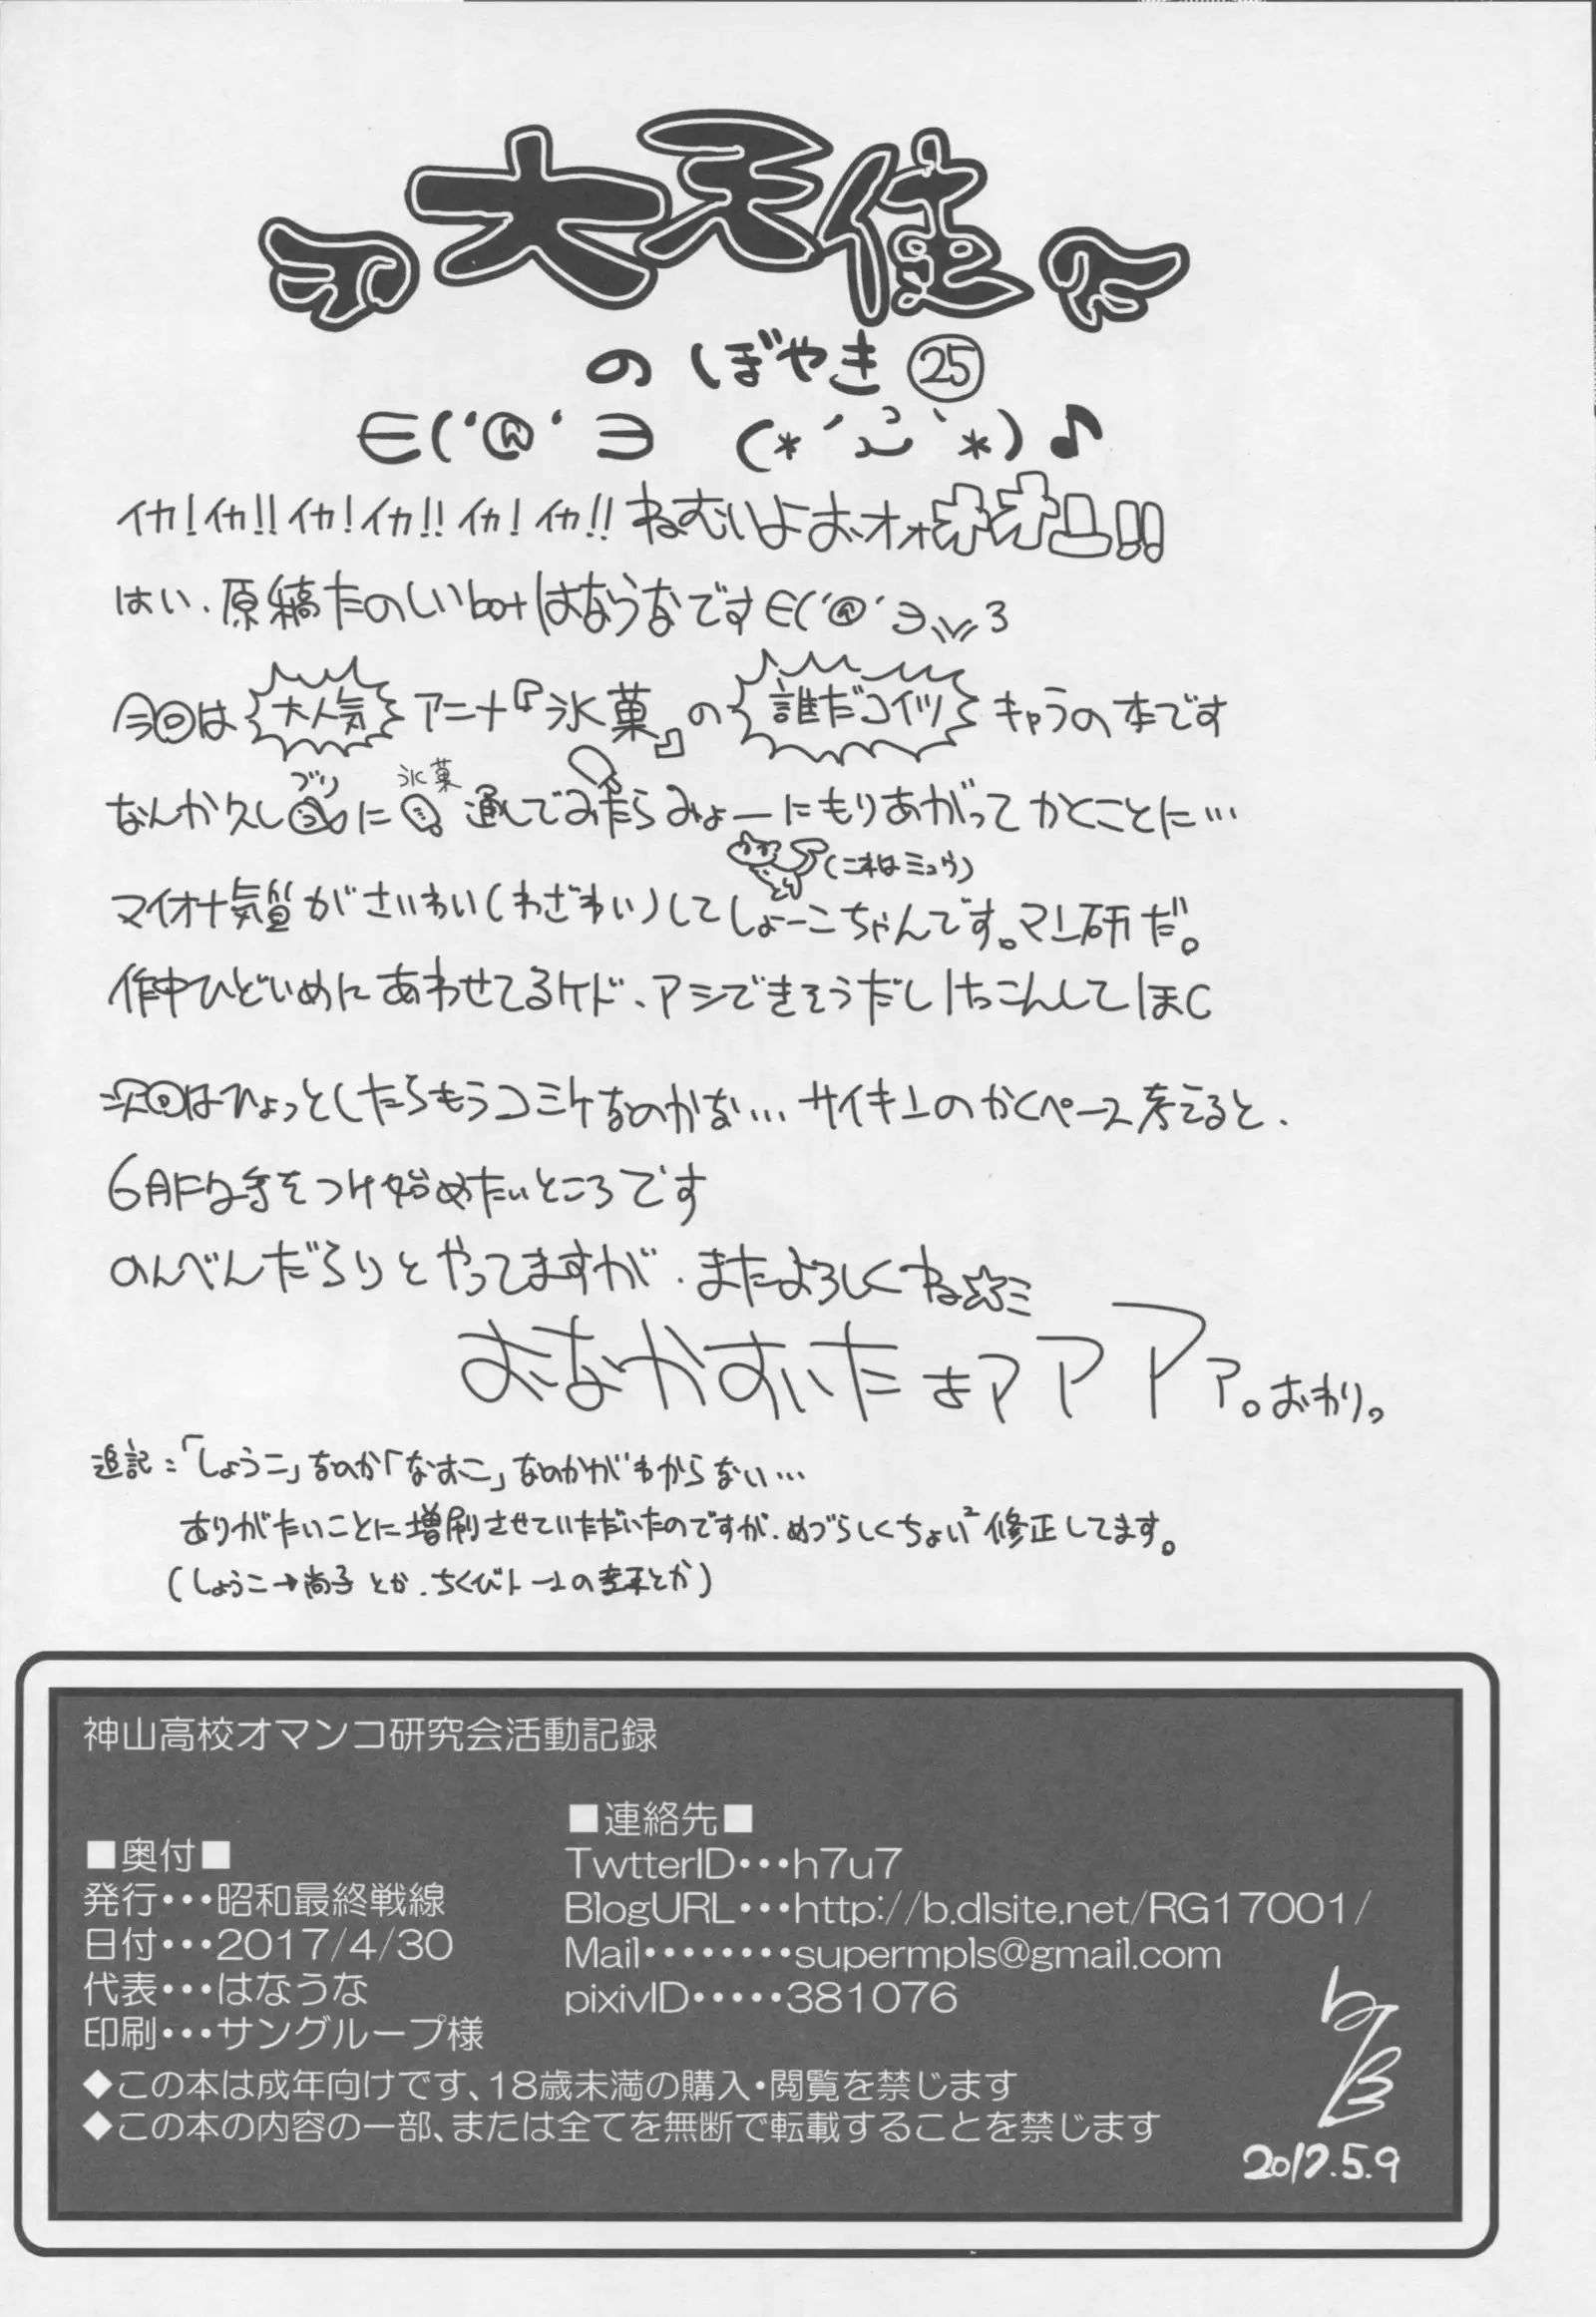 大天使
のぼやき㉕
∈('@'∋ (*´ `*)♪
イカ!イカ!!イカ!イカ!!イカ!イカ!!ねむいよおオォオオー!!
はい、原稿たのしいbotはなうなです∈('@'∋ 3
今回は大人気アニメ『氷菓』の誰だコイツキャラの本です
なんか久しに 通しでみたらみょーにもりあがってかくことに…
ブリ 氷菓
(これはミュウ)
マイナー気質がさいわい(わざわい)してしょーこちゃんです。マン研だ。
作中ひどいめにあわせてるケド、アシできそうだしけっこんしてほC
次回はひょっとしたらもうコミケなのかな…サイキンのかくペース考えると、
6月には手をつけ始めたいところです
のんべんだらりとやってますが、またよろしくね☆ミ
おなかすいたよアアアァ。おわり。
追記:「しょうこ」なのか「なおこ」なのかがわからない…
ありがたいことに増刷させていただいたのですが、めづらしくちょい²修正してます。
(しょうこ→尚子とか、ちくびトーンの変化とか)
神山高校オマンコ研究会活動記録
■奥付■
発行・・・昭和最終戦線
日付・・・2017/4/30
代表・・・はなうな
印刷・・・サングループ様
■連絡先■
TwtterID・・・h7u7
BlogURL・・・http://b.dlsite.net/RG17001/
Mail・・・・・・・・supermpls@gmail.com
pixivID・・・・・381076
◆この本は成年向けです、18歳未満の購入・閲覧を禁じます
◆この本の内容の一部、または全てを無断で転載することを禁じます
2017.5.9